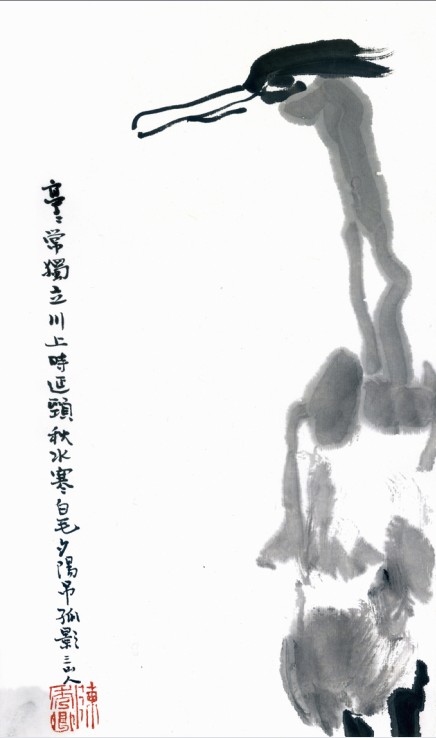 亭〻常獨立川上時延頸秋水寒白毛夕陽吊孤影三山人